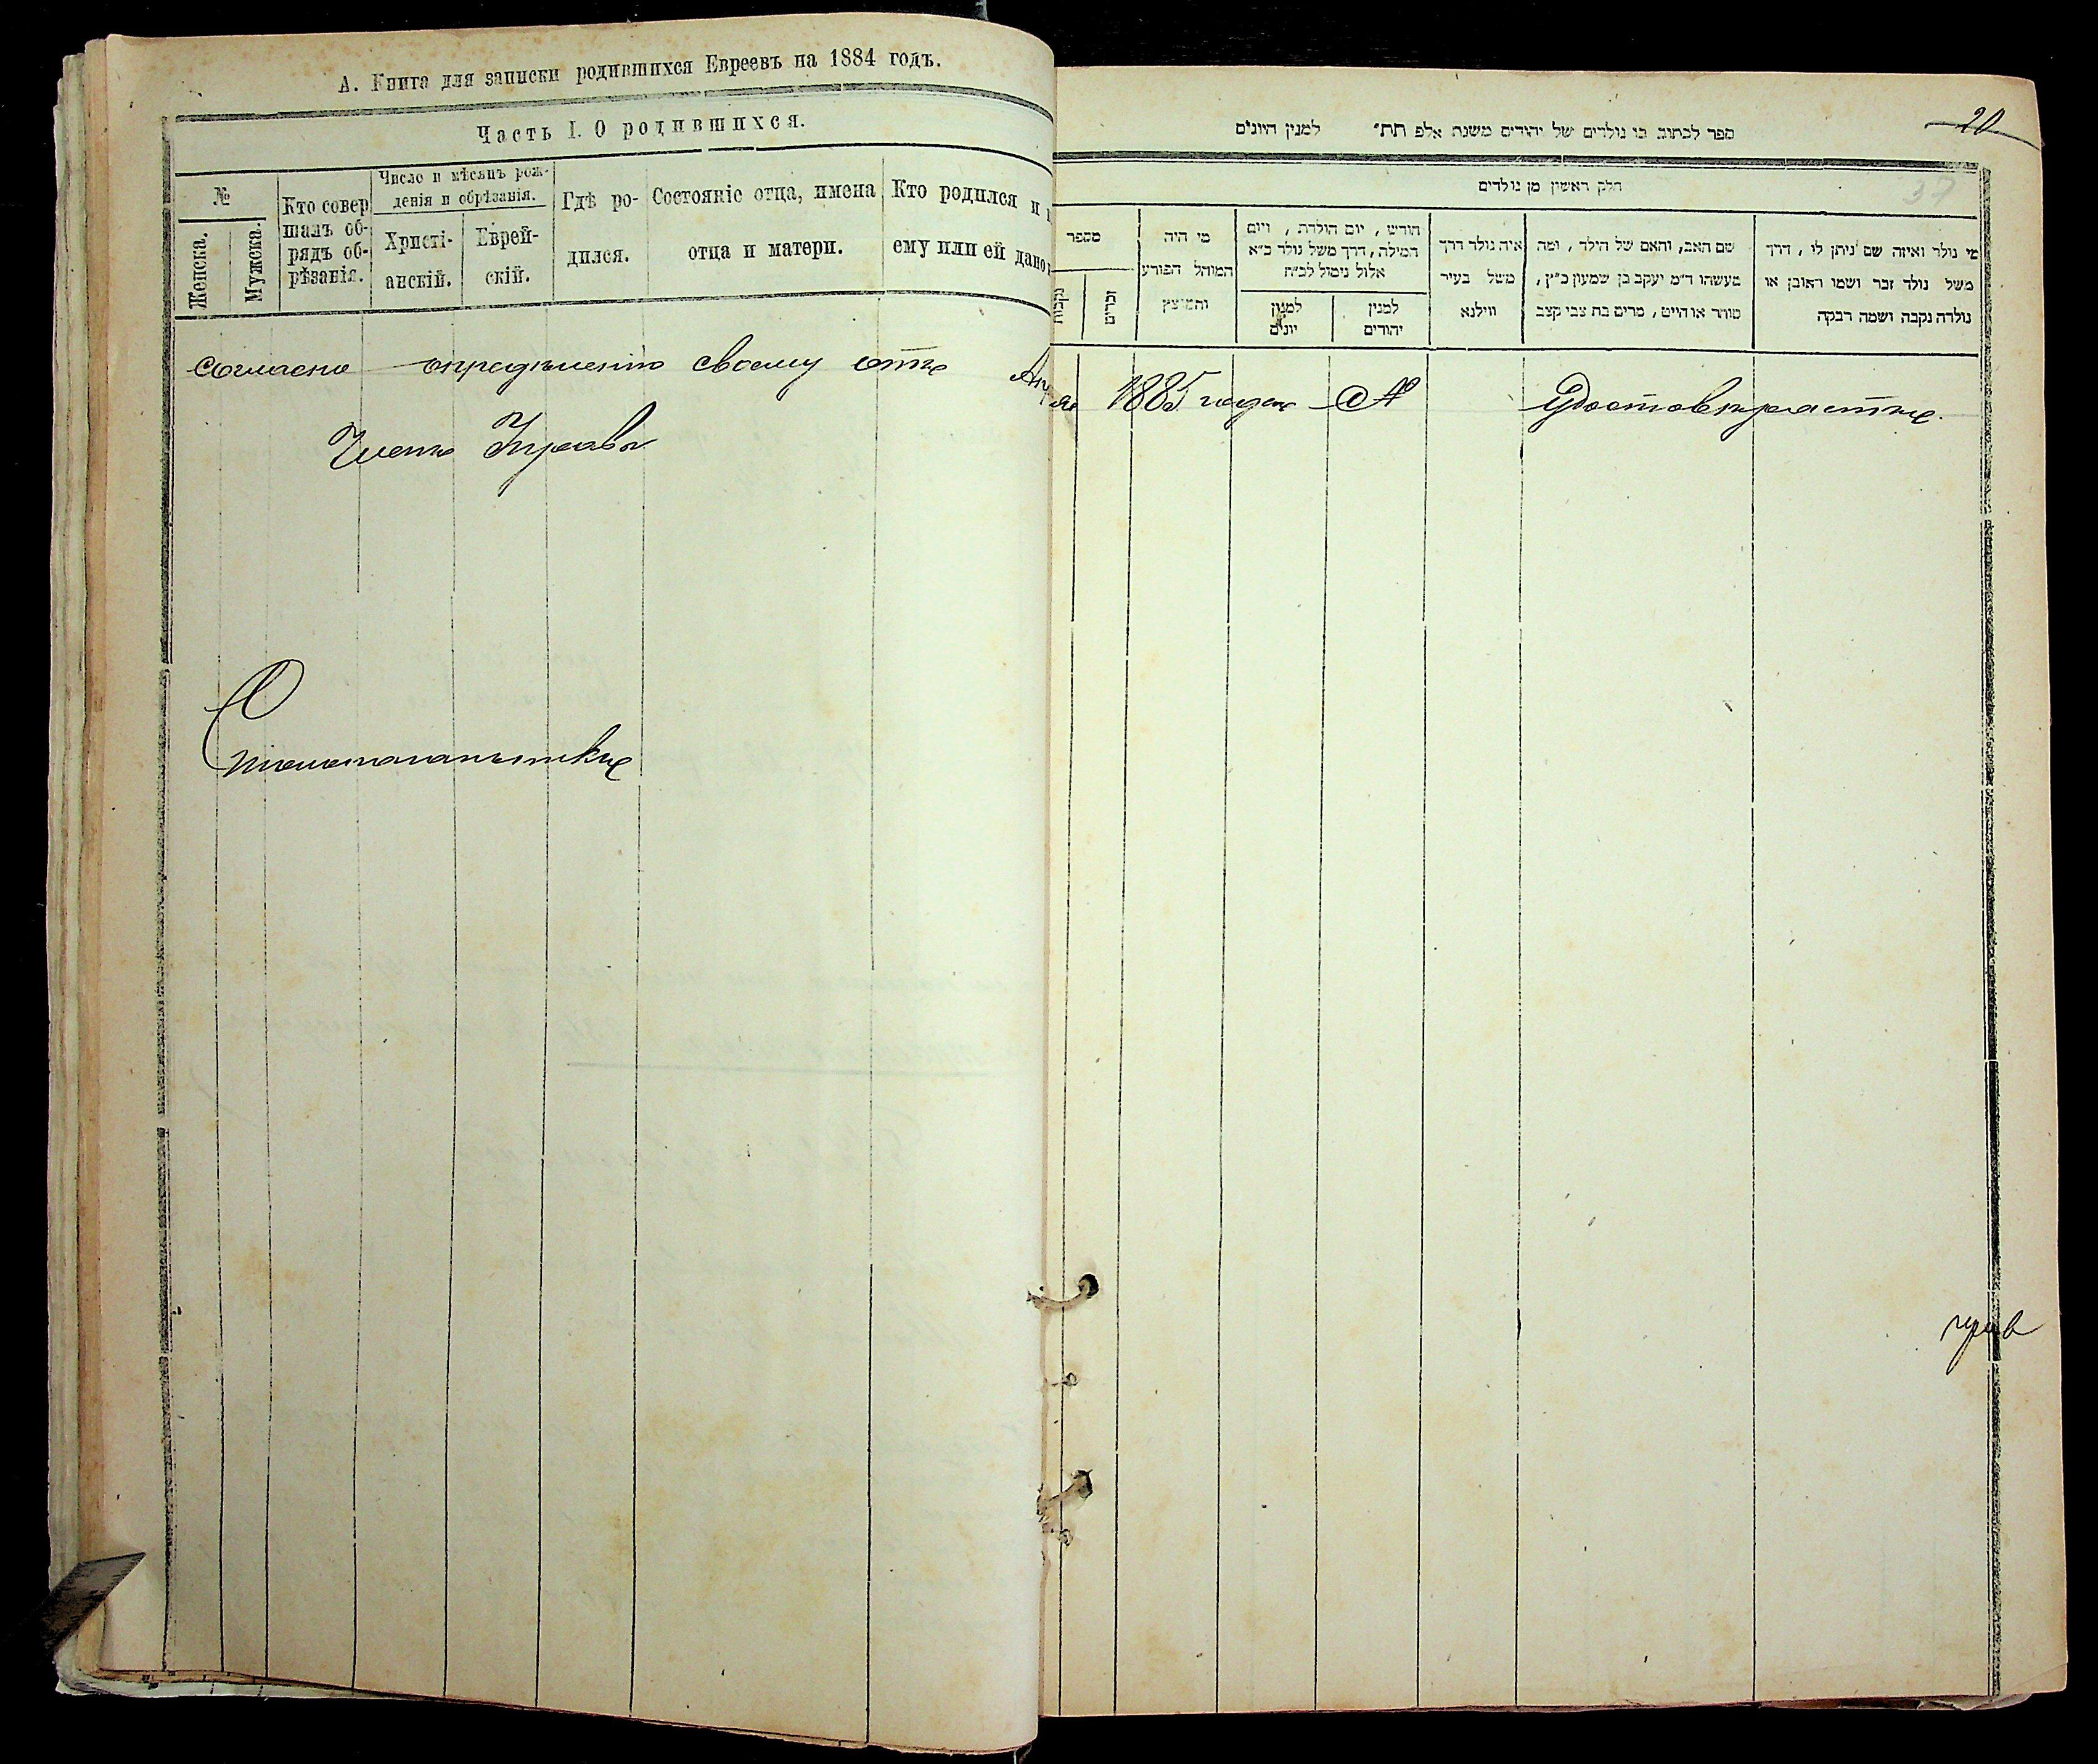 А. Книга для записки родившихся Евреевъ на 1884 годъ.
Часть I. О родившихся.
№
Женска.
Мужска.
Кто совер
шалъ об-
рядъ об-
рѣзанія.
Число и мѣсяцъ рож-
денія и обрѣзанія.
Христі-
анскій.
Еврей-
скій.
Гдѣ ро-
дился.
Состояніе отца, имена
отца и матери.
Кто родился и
ему или ей дано
согласно опредѣленію своему отъ
Членъ Управы
ספר לכתוב בו נולדים של יהודים משנת אלפ תת״ למנין היונים
20
37
חלק ראשון מן נולדים
מספר
נקבות
זכרים
מי היה
המוהל הפורע
והמוצץ
חודש , יום הולדת , ויום
המילה, דרך משל נולד כ״א
אלול נימול לכ״ח
למנין
יונים
למנין
יהודים
איה נולד דרך
משל בעיר
ווילנא
שם האב, והאם של הילד , ומה
מעשהו ד״מ יעקב בן שמעון כ״ץ ,
סוחר או חייט , מרים בת צבי קצב
מי נולד ואיזה שם ניתן לו , דרך
משל נולד זכר ושמו ראובן או
נולדה נקבה ושמה רבקה
1885 года №